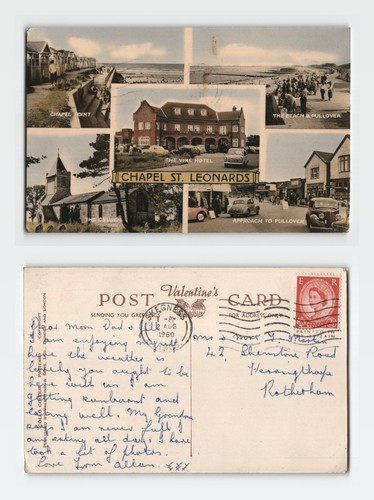 CHAPEL POINT
THE BEACH & PULLOVER
THE VINE HOTEL
CHAPEL ST. LEONARDS
THE CHURCH
APPROACH TO PULLOVER
POST Valentine's CARD
SENDING YOU GREETINGS
FOR ADDRESS ONLY
SKEGNESS
AUG
1960
E R
Dear Mom Dad & Jill
I am enjoying myself
the weather is
lovely you ought to be
here with us I am
getting sunburnt and
eating well. My Grandpa
says I am never full I
am eating all day. I have
took a lot of photos.
Love from Allan. xxx
Mr & Mrs F. Martin
42, Road
Herringthorpe
Rotherham